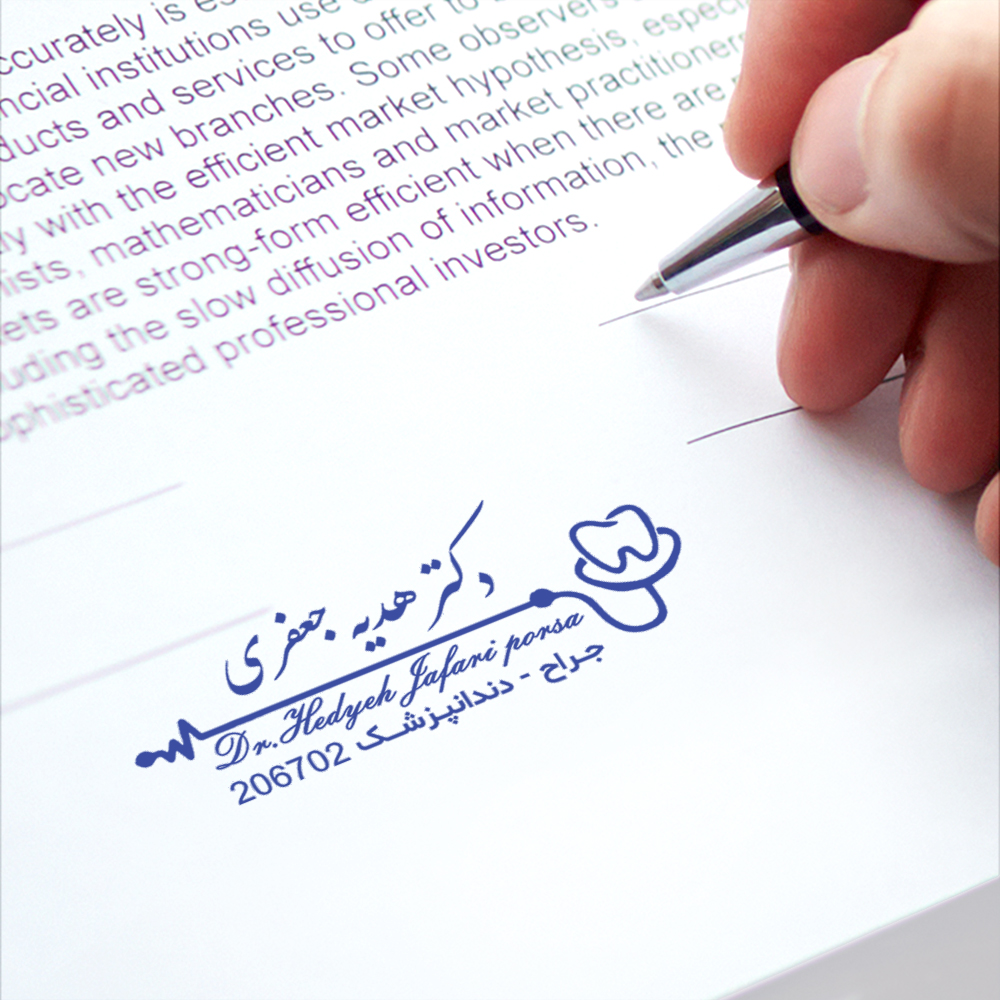 ccurately is es
ncial institutions use
ducts and services to offer to
ocate new branches. Some observers
ly with the efficient market hypothesis, especi
ists, mathematicians and market practitioners
ets are strong-form efficient when there are
uding the slow diffusion of information, the
ophisticated professional investors.
دکتر هدیه جعفری
Dr.Hedyeh Jafari porsa
جراح - دندانپزشک 206702